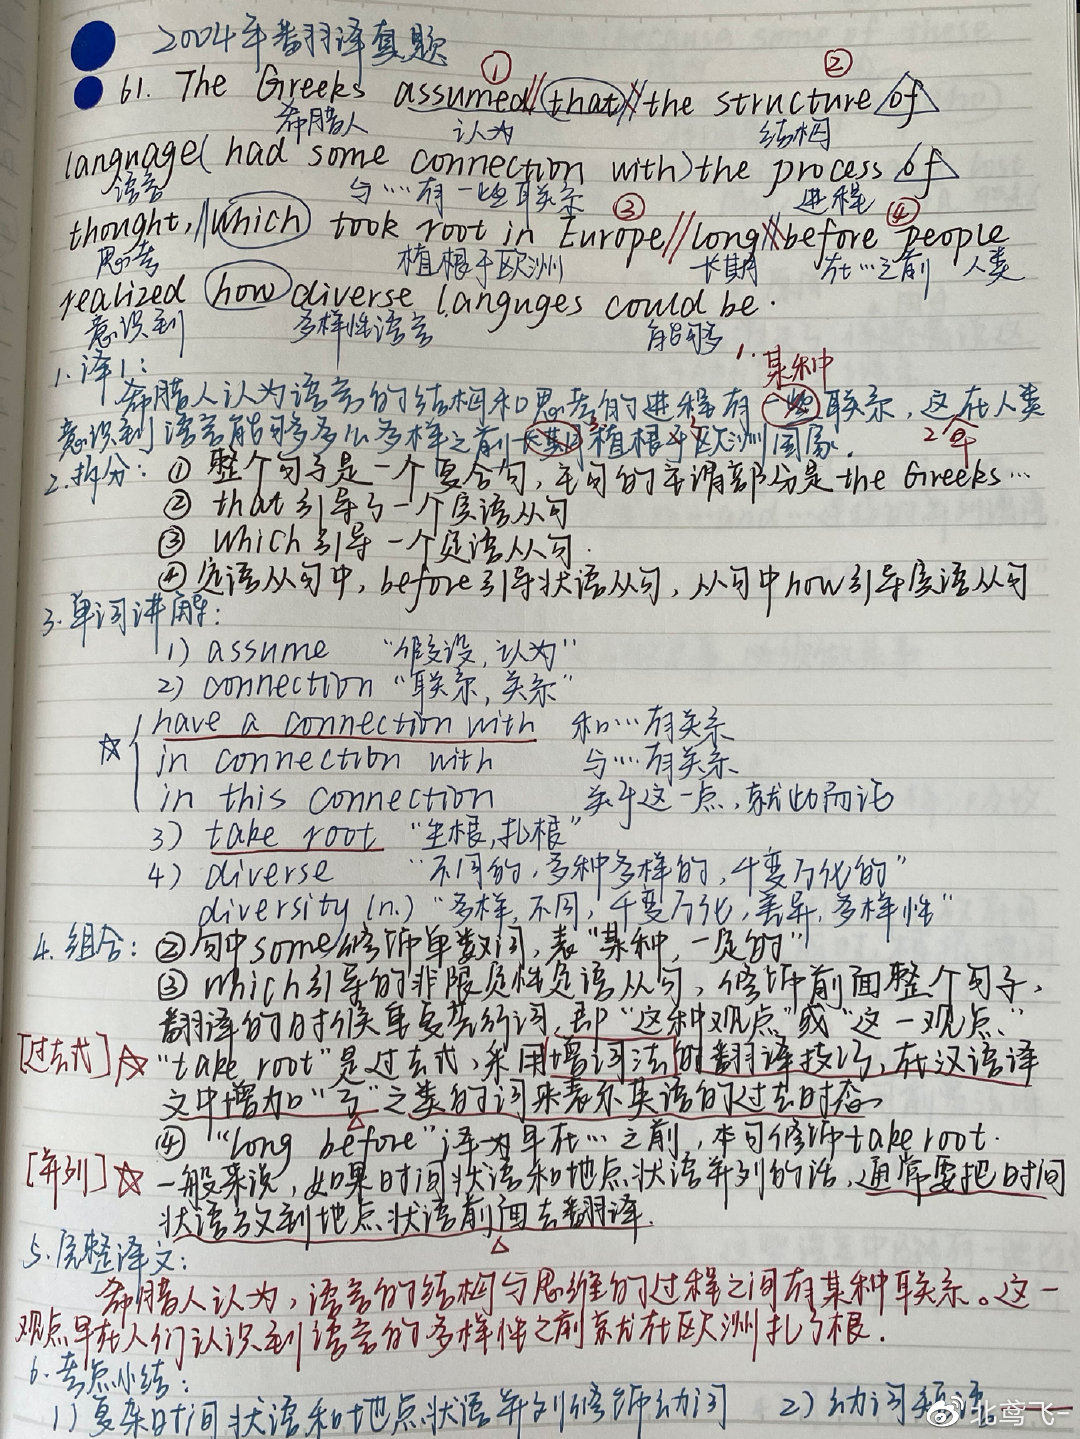 2004年翻译真题
① ②
61. The Greeks assumed // that // the structure of
希腊人 认为 结构
language (had some connection with) the process of
语言 与……有一些联系 进程
③ ④
thought, // which took root in Europe // long // before people
思考 植根于欧洲 长期 在…之前 人类
realized how diverse languges could be.
意识到 多样性语言 能够
1. 某种
1. 译1:
希腊人认为语言的结构和思考的进程有一些联系,这在人类
2 早
意识到语言能够多么多样之前长期植根于欧洲国家.
2. 拆分: ① 整个句子是一个复合句,主句的主谓部分是the Greeks…
② that引导了一个宾语从句
③ which引导一个定语从句.
④ 定语从句中, before引导状语从句, 从句中how引导宾语从句
3. 单词讲解:
1) assume “假设,认为”
2) connection “联系,关系”
☆ have a connection with 和……有关系
in connection with 与……有关系
in this connection 关于这一点,就此而论
3) take root “生根,扎根”
4) diverse “不同的,多种多样的,千变万化的”
diversity (n.) “多样,不同,千变万化,差异,多样性”
4. 组合: ② 句中some修饰单数词,表“某种,一定的”
③ which引导的非限定性定语从句,修饰前面整个句子,
翻译的时候重复先行词,即“这种观点”或“这一观点.”
[过去式] ☆ “take root”是过去式,采用增词法的翻译技巧,在汉语译
文中增加“了”之类的词来表示英语的过去时态.
④ “long before”译为早在…之前,本句修饰take root.
[并列] ☆ 一般来说,如果时间状语和地点状语并列的话,通常要把时间
状语放到地点状语前面去翻译.
5. 完整译文:
希腊人认为,语言的结构与思维的过程之间有某种联系。这一
观点早在人们认识到语言的多样性之前就在欧洲扎了根.
6. 考点小结:
1) 复杂时间状语和地点状语并列修饰动词 2) 动词
北鸢飞-